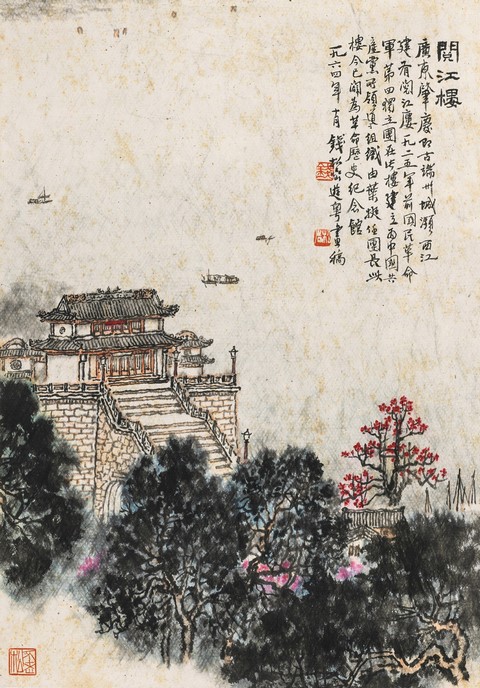 閱江樓
廣東肇慶即古端州城瀕西江
建有閱江樓一九二五年前國民革命
軍第四獨立團在此樓建立為中國共
產黨所領導組織由葉挺任團長此
樓今已闢為革命歷史紀念館
一九六四年十月錢松嵒遊粵畫稿